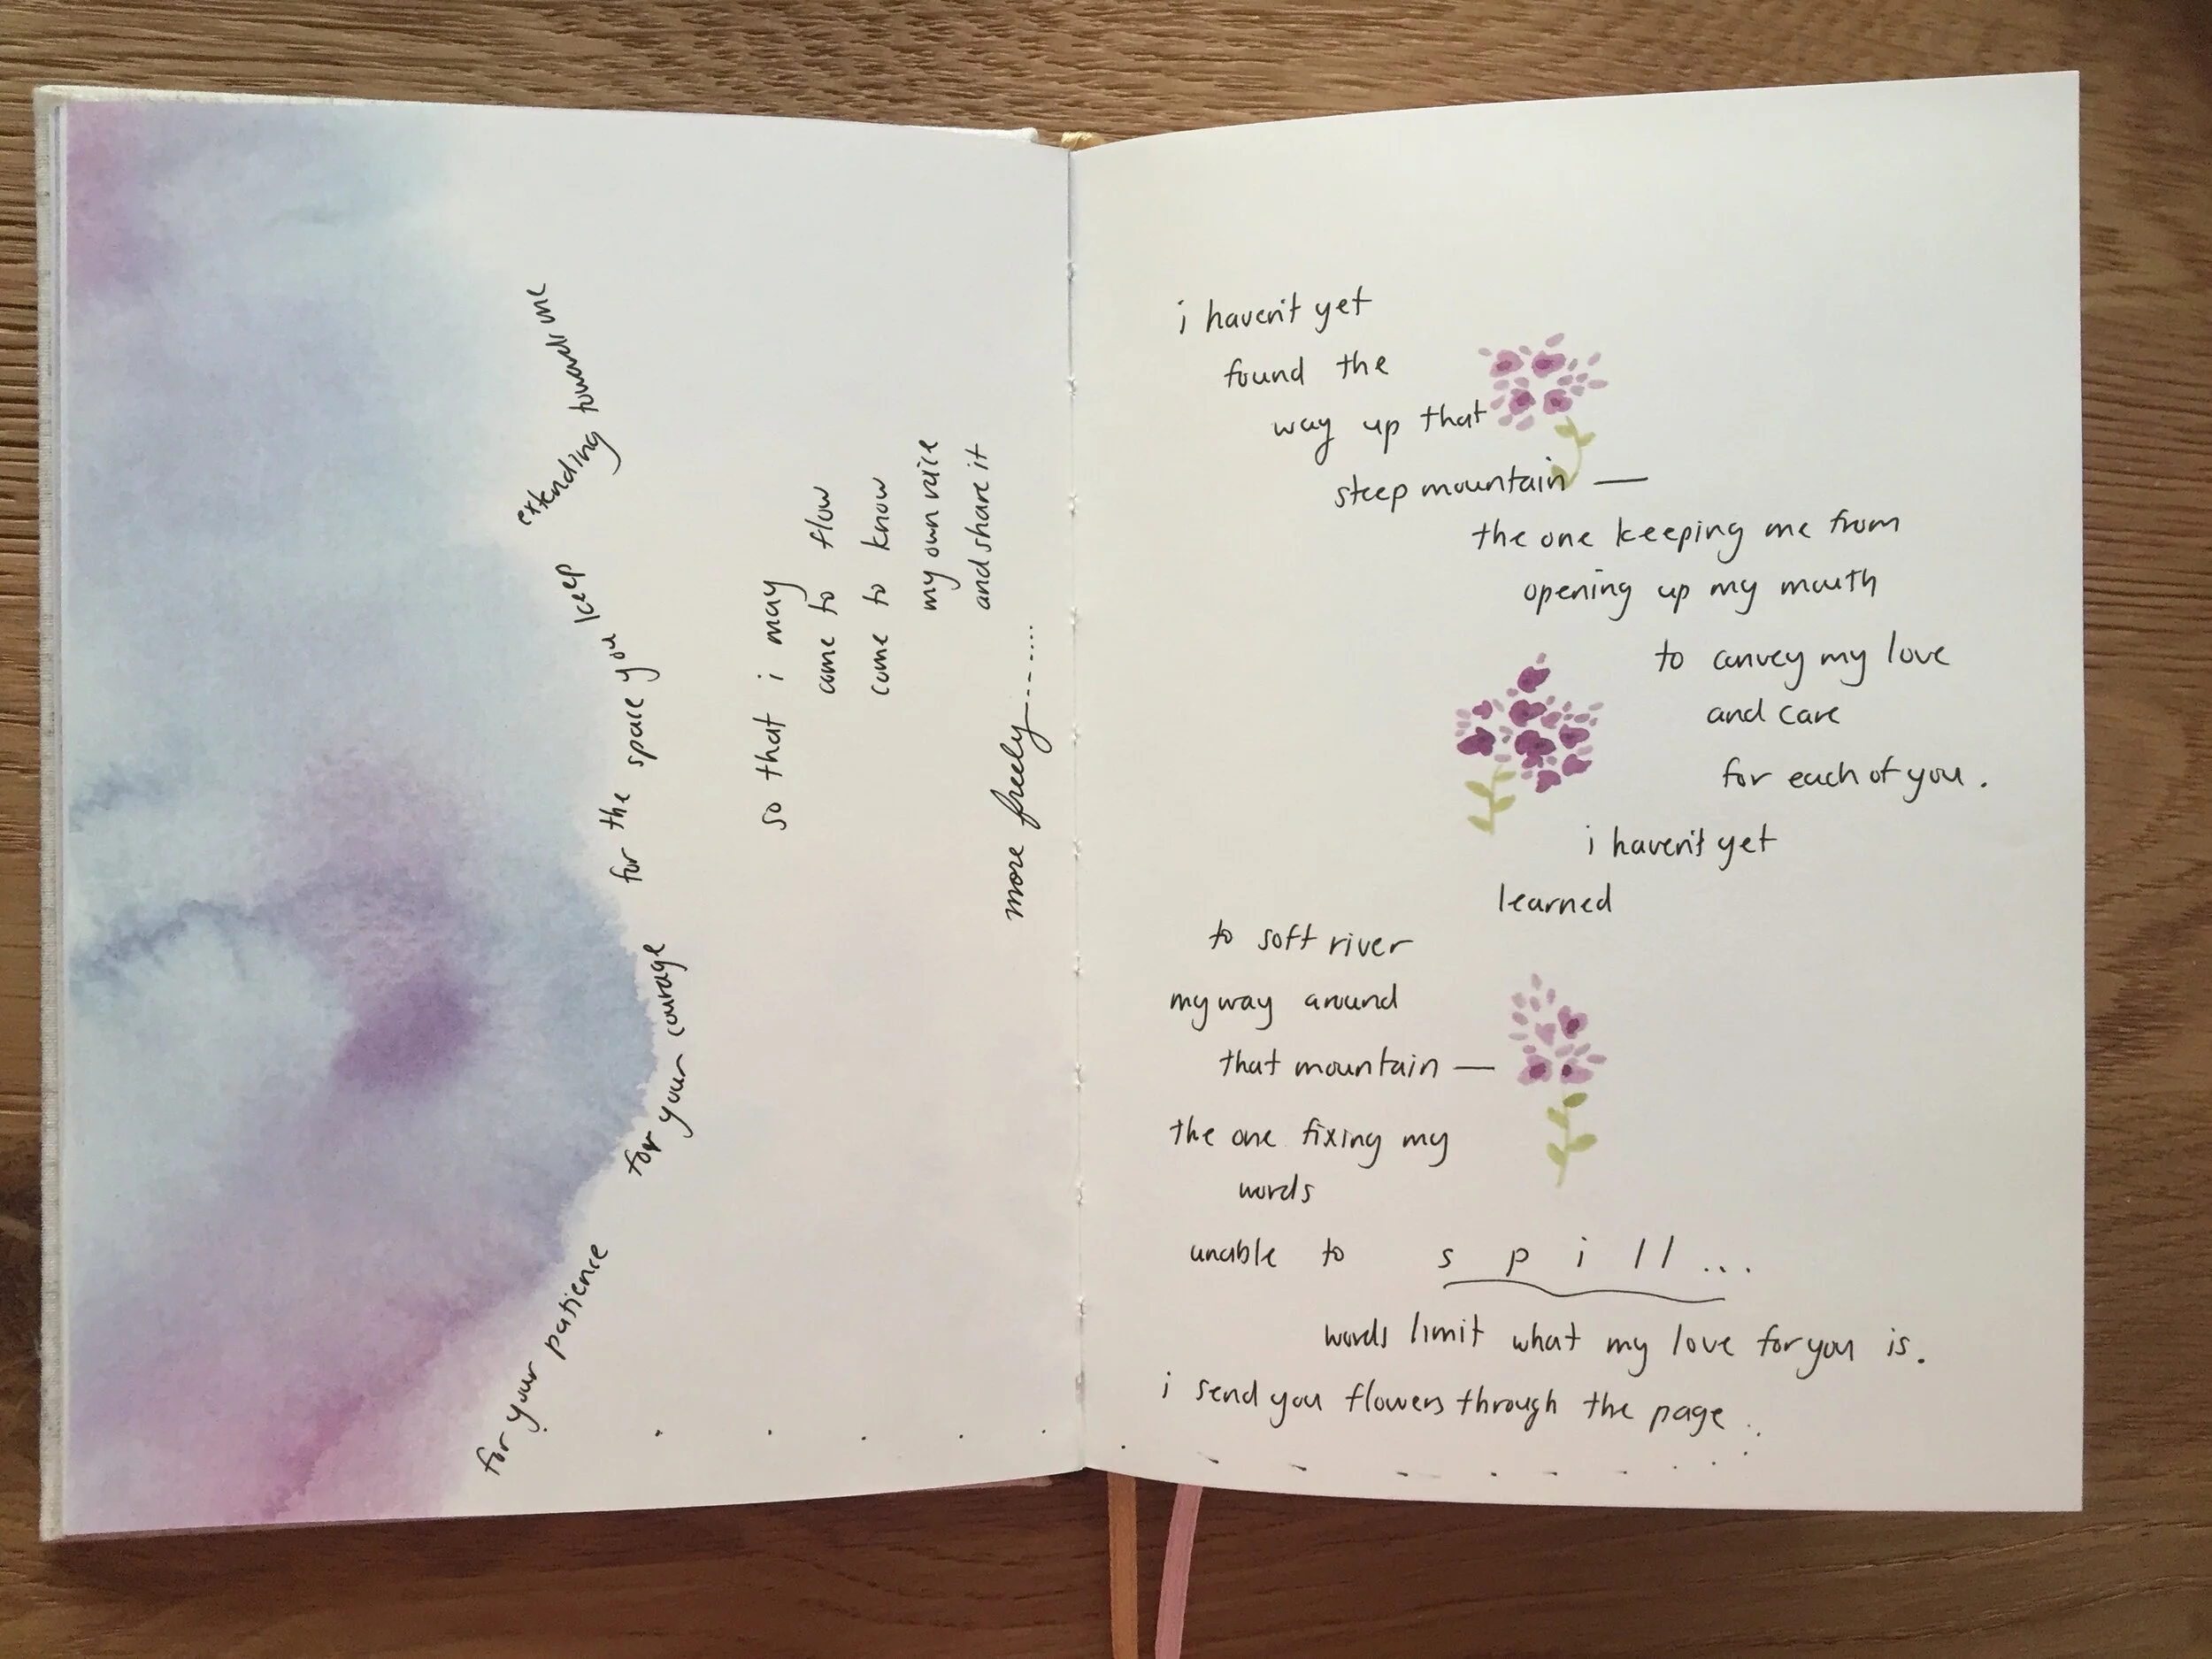 for your patience
for your courage
for the space you keep
extending towards me
so that i may
come to flow
come to know
my own voice
and share it
more freely..........
i haven't yet
found the
way up that
steep mountain —
the one keeping me from
opening up my mouth
to convey my love
and care
for each of you.
i haven't yet
learned
to soft river
my way around
that mountain —
the one fixing my
words
unable to s p i l l ...
words limit what my love for you is.
i send you flowers through the page.